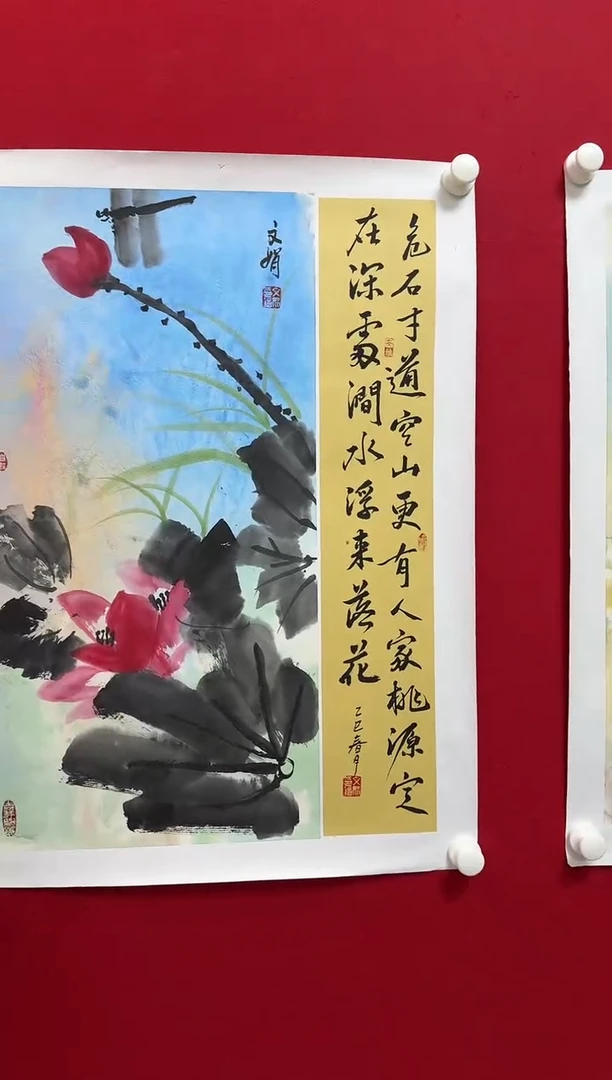 危石才道空山更有人家桃源定
在深處澗水浮来落花
乙巳春月
文娟